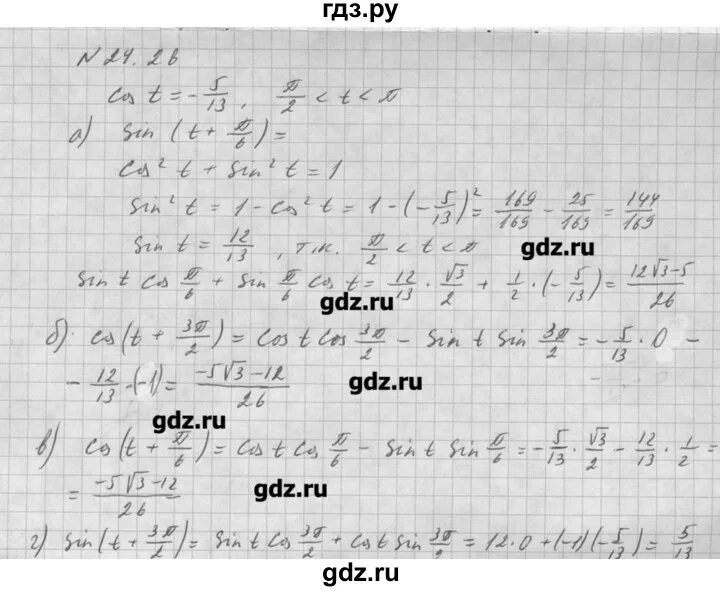 гдз.ру
N 24.26
cos t = -5/13, π/2 < t < π
а) sin (t + π/6) =
cos² t + sin² t = 1
sin² t = 1 - cos² t = 1 - (-5/13)² = 169/169 - 25/169 = 144/169
sin t = 12/13, т.к. π/2 < t < π
gdz.ru
sin t cos π/6 + sin π/6 cos t = 12/13 · √3/2 + 1/2 · (-5/13) = (12√3-5)/26
gdz.ru
б) cos(t + 3π/2) = cos t cos 3π/2 - sin t sin 3π/2 = -5/13 · 0 -
- 12/13 · (-1) = (-5√3-12)/26
gdz.ru
gdz.ru
в) cos(t + π/6) = cos t cos π/6 - sin t sin π/6 = -5/13 · √3/2 - 12/13 · 1/2 =
= (-5√3-12)/26
gdz.ru
г) sin(t + 3π/2) = sin t cos 3π/2 + cos t sin 3π/2 = 12·0 + (-1)(-5/13) = 5/13
gdz.ru